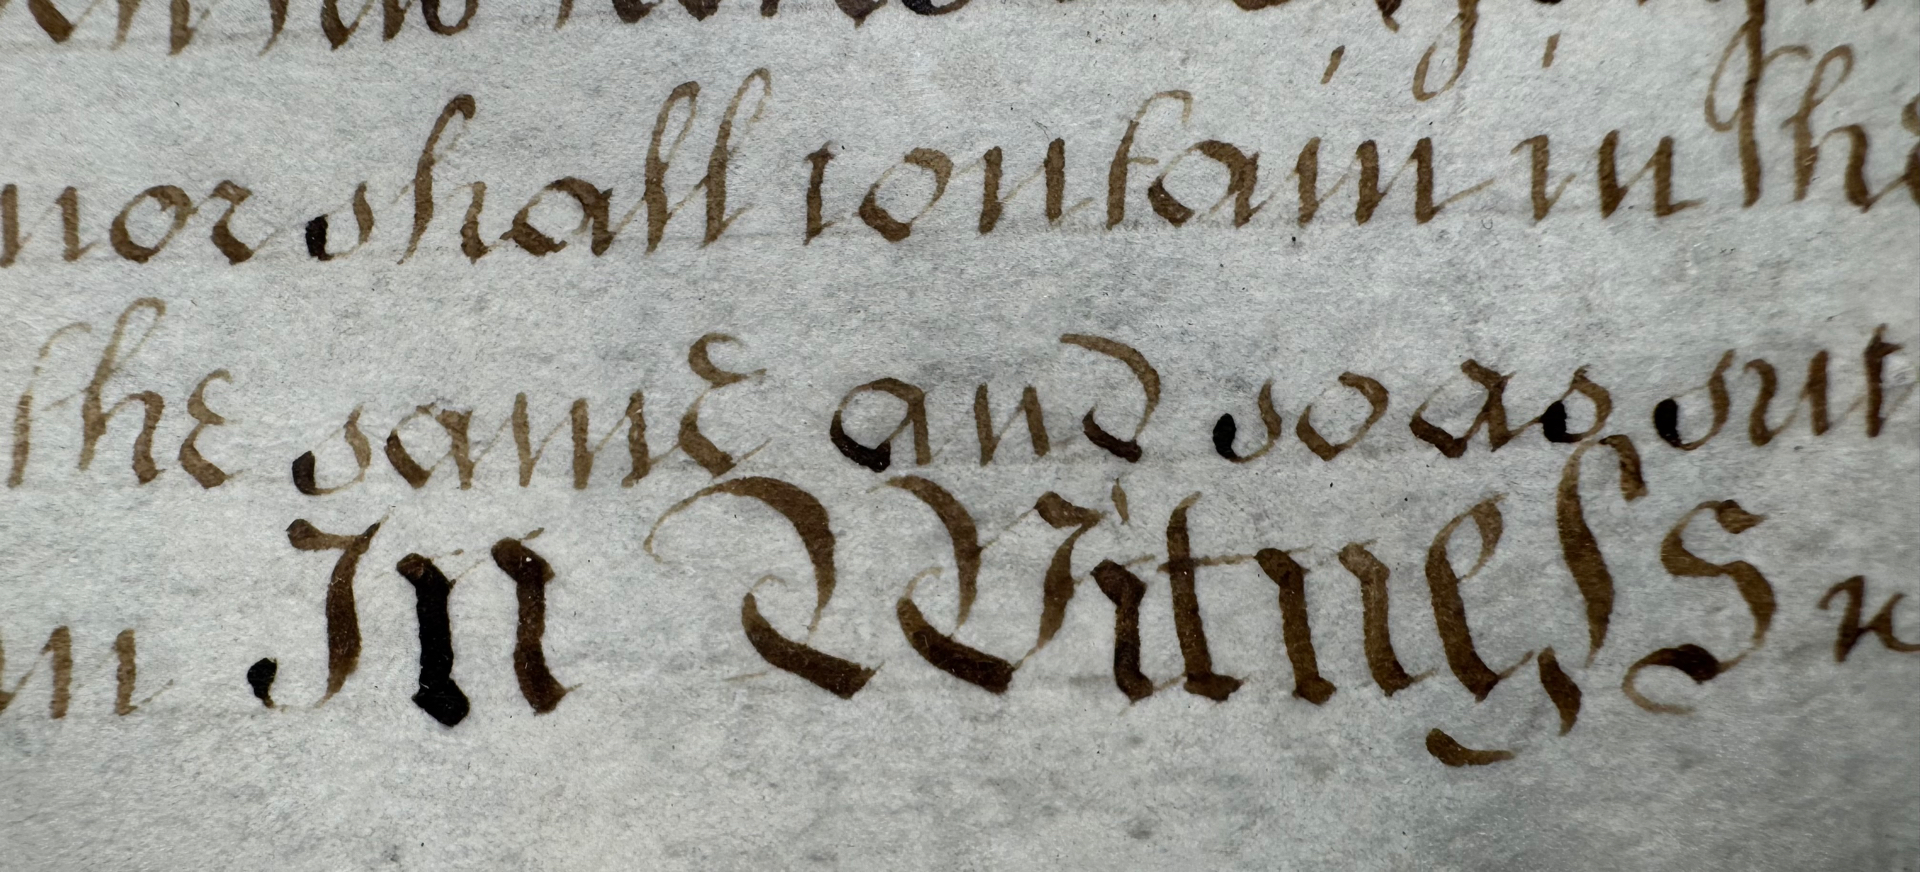 nor shall contain in the
the same and so as suc
In Witness